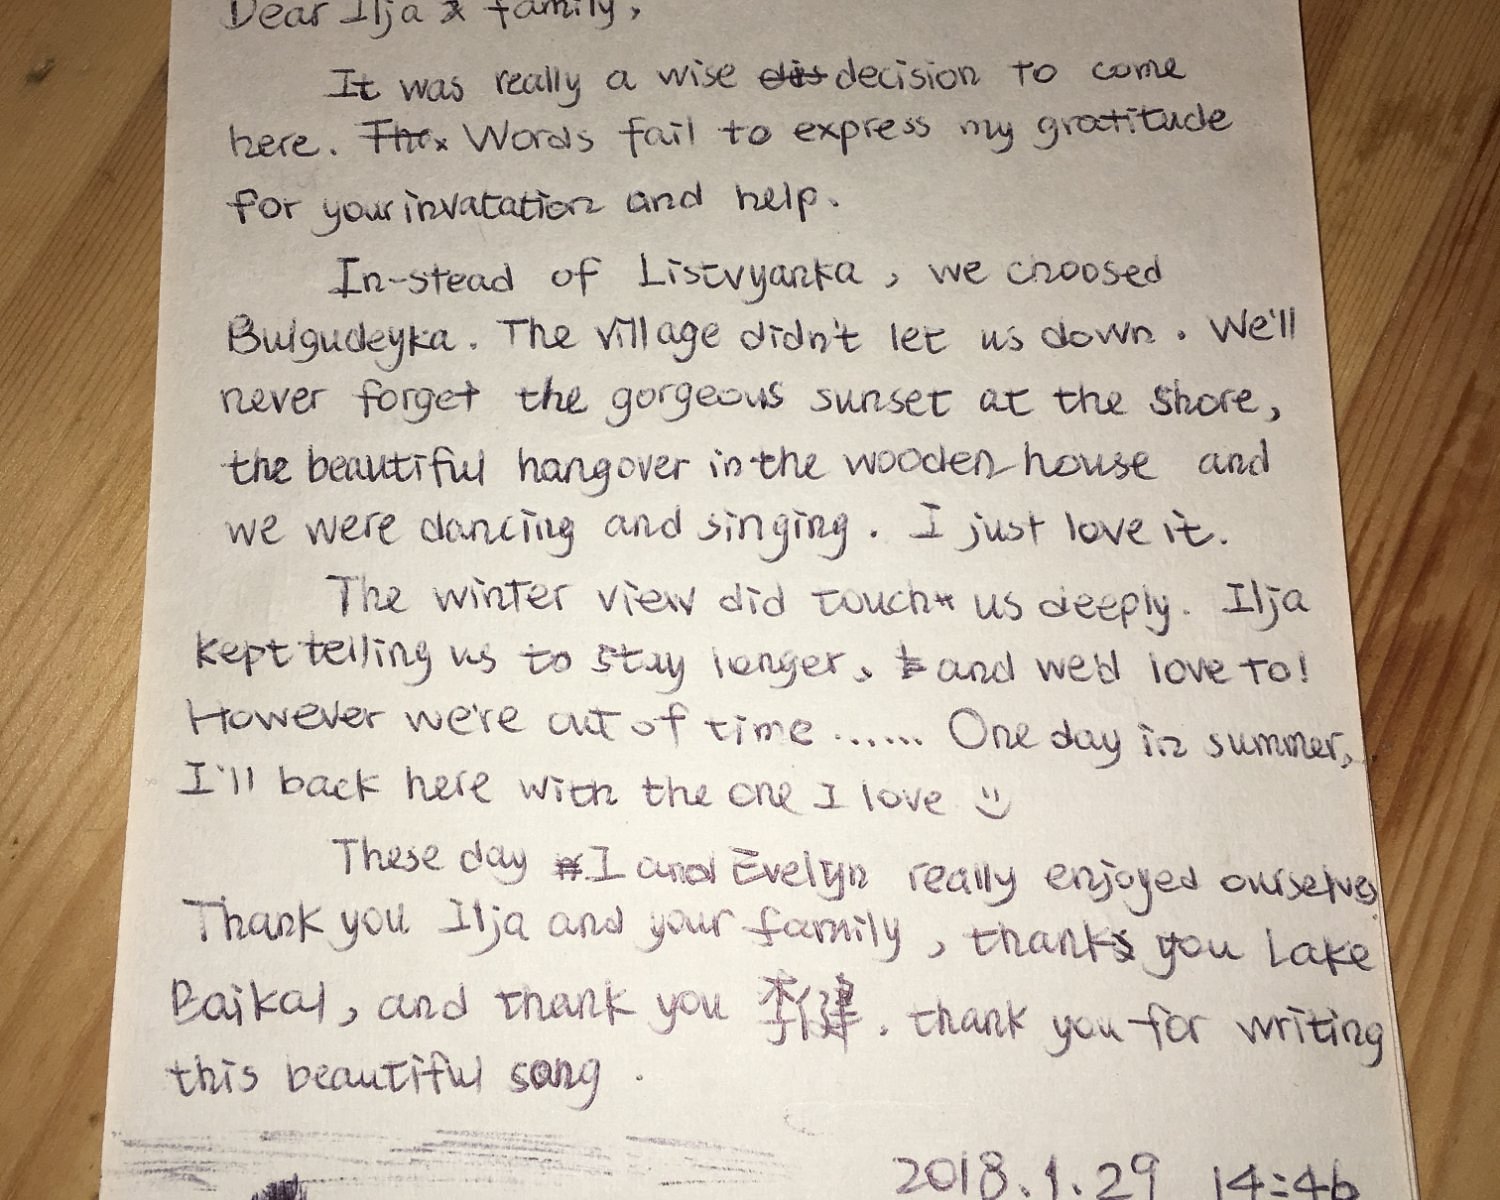 Dear Ilja & family,
It was really a wise decision to come
here. Words fail to express my gratitude
for your invatation and help.
In-stead of Listvyanka, we choosed
Bulgudeyka. The village didn't let us down. We'll
never forget the gorgeous sunset at the shore,
the beautiful hangover in the wooden house and
we were dancing and singing. I just love it.
The winter view did touch us deeply. Ilja
kept telling us to stay longer, and we'd love to!
However we're out of time ...... One day in summer,
I'll back here with the one I love
These day I and Evelyn really enjoyed ourselves.
Thank you Ilja and your family, thank you Lake
Baikal, and thank you 李健. thank you for writing
this beautiful song.
2018.1.29 14:46